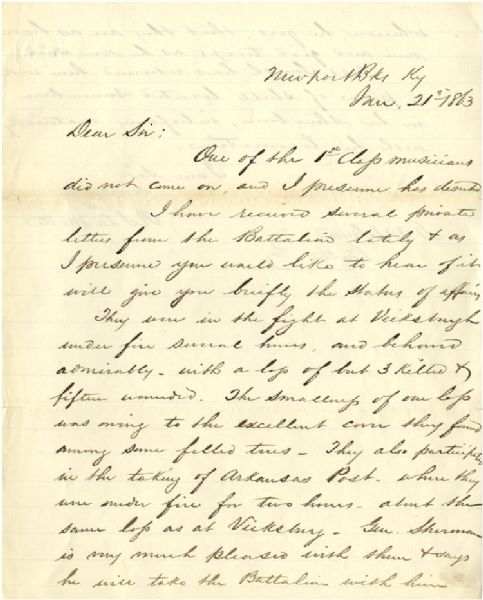 Newport Bks Ky
Jan. 21st 1863
Dear Sir:
One of the 1st Class musicians
did not come on, and I presume has deserted
I have received several private
letters from the Battalion lately & as
I presume you would like to hear of it
will give you briefly the status of affairs
They were in the fight at Vicksburgh
under fire several hours, and behaved
admirably - with a loss of but 3 killed &
fifteen wounded. The smallness of our loss
was owing to the excellent cover they found
among some felled trees - They also participated
in the taking of Arkansas Post - where they
were under fire for two hours - about the
same loss as at Vicksburg - Gen. Sherman
is very much pleased with them & says
he will take the Battalion with him